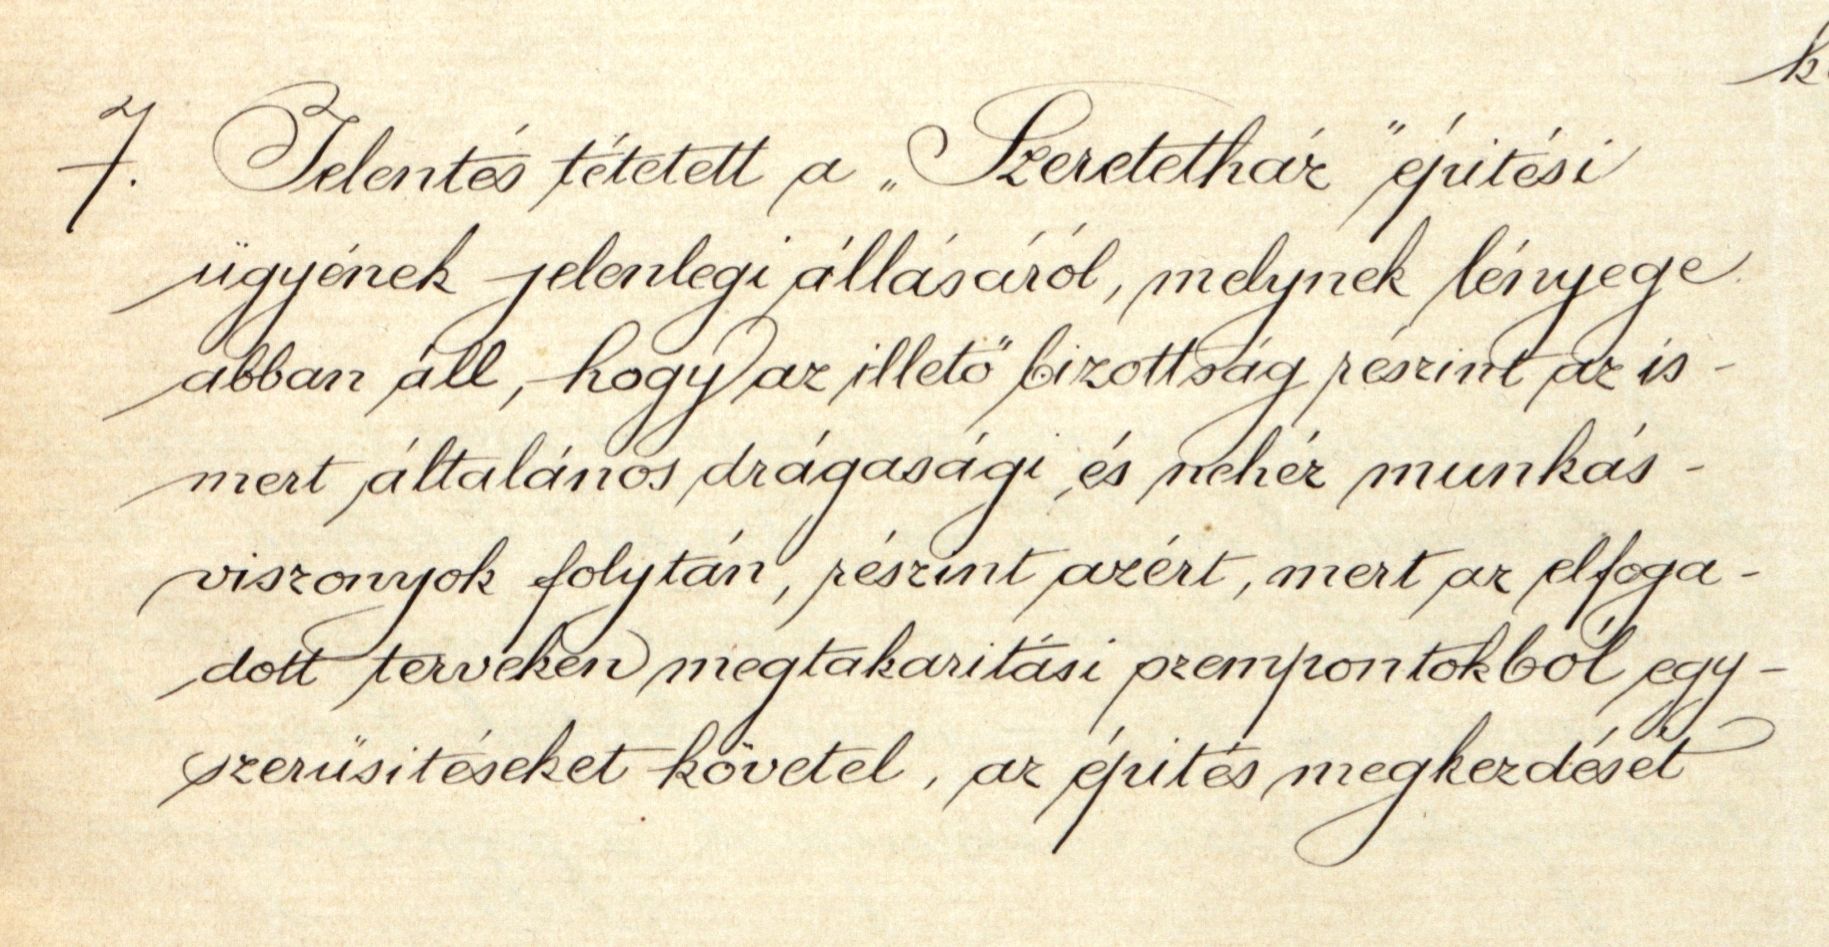 7. Jelentés tétetett a „Szeretetház" épitési
ügyének jelenlegi állásáról, melynek lényege
abban áll, hogy az illető bizottság részint az is-
mert általános drágasági és nehéz munkás-
viszonyok folytán, részint azért, mert az elfoga-
dott terveken megtakaritási szempontokból egy-
szerüsitéseket követel, az épités megkezdését